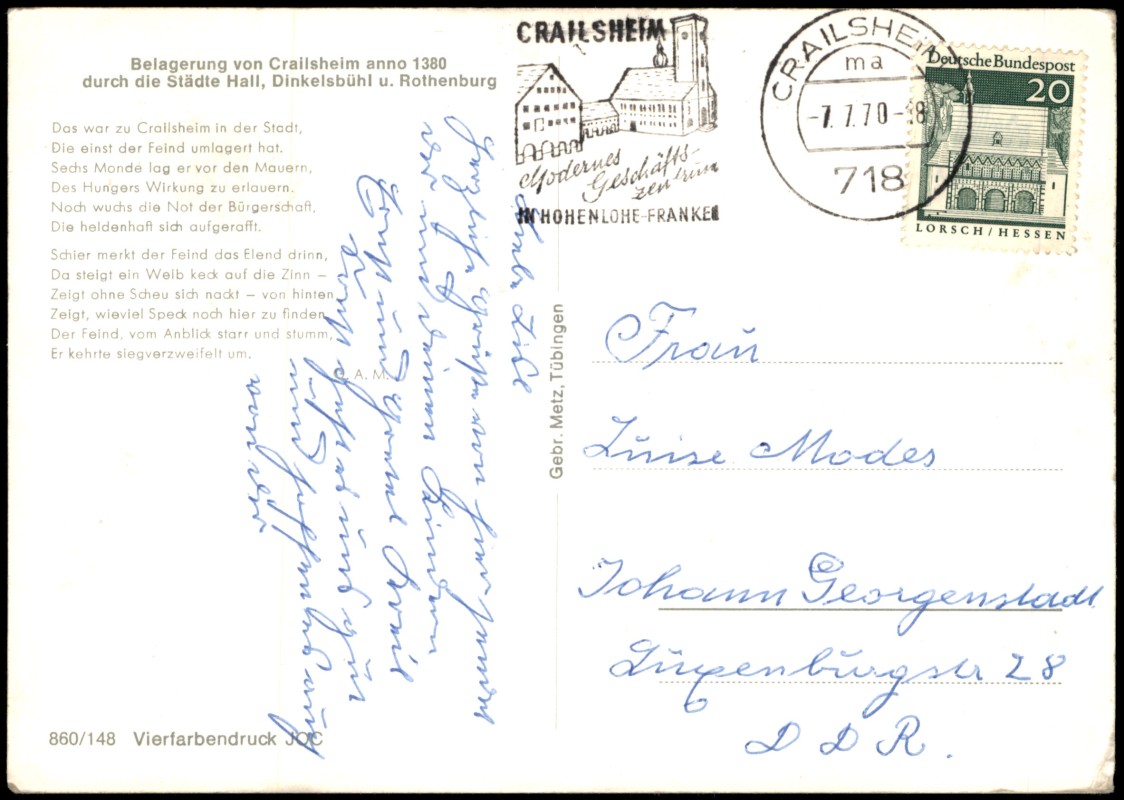 Belagerung von Crailsheim anno 1380
durch die Städte Hall, Dinkelsbühl u. Rothenburg
Das war zu Crailsheim in der Stadt,
Die einst der Feind umlagert hat.
Sechs Monde lag er vor den Mauern,
Des Hungers Wirkung zu erlauern.
Noch wuchs die Not der Bürgerschaft,
Die heldenhaft sich aufgerafft.
Schier merkt der Feind das Elend drinn,
Da steigt ein Weib keck auf die Zinn –
Zeigt ohne Scheu sich nackt – von hinten
Zeigt, wieviel Speck noch hier zu finden
Der Feind, vom Anblick starr und stumm,
Er kehrte siegverzweifelt um.
A. M.
860/148 Vierfarbendruck JOC
Gebr. Metz, Tübingen
CRAILSHEIM
Modernes
Geschäfts-
zentrum
IN HOHENLOHE-FRANKEN
CRAILSHEIM
ma
-7.7.70-18
718
Deutsche Bundespost
20
LORSCH/HESSEN
Liebe
Herzliche Grüße von hier sendet
und deinen Kindern
und
und
Frau
Luise Modes
Johann Georgenstadt
Luxenburgstr 28
D D R.